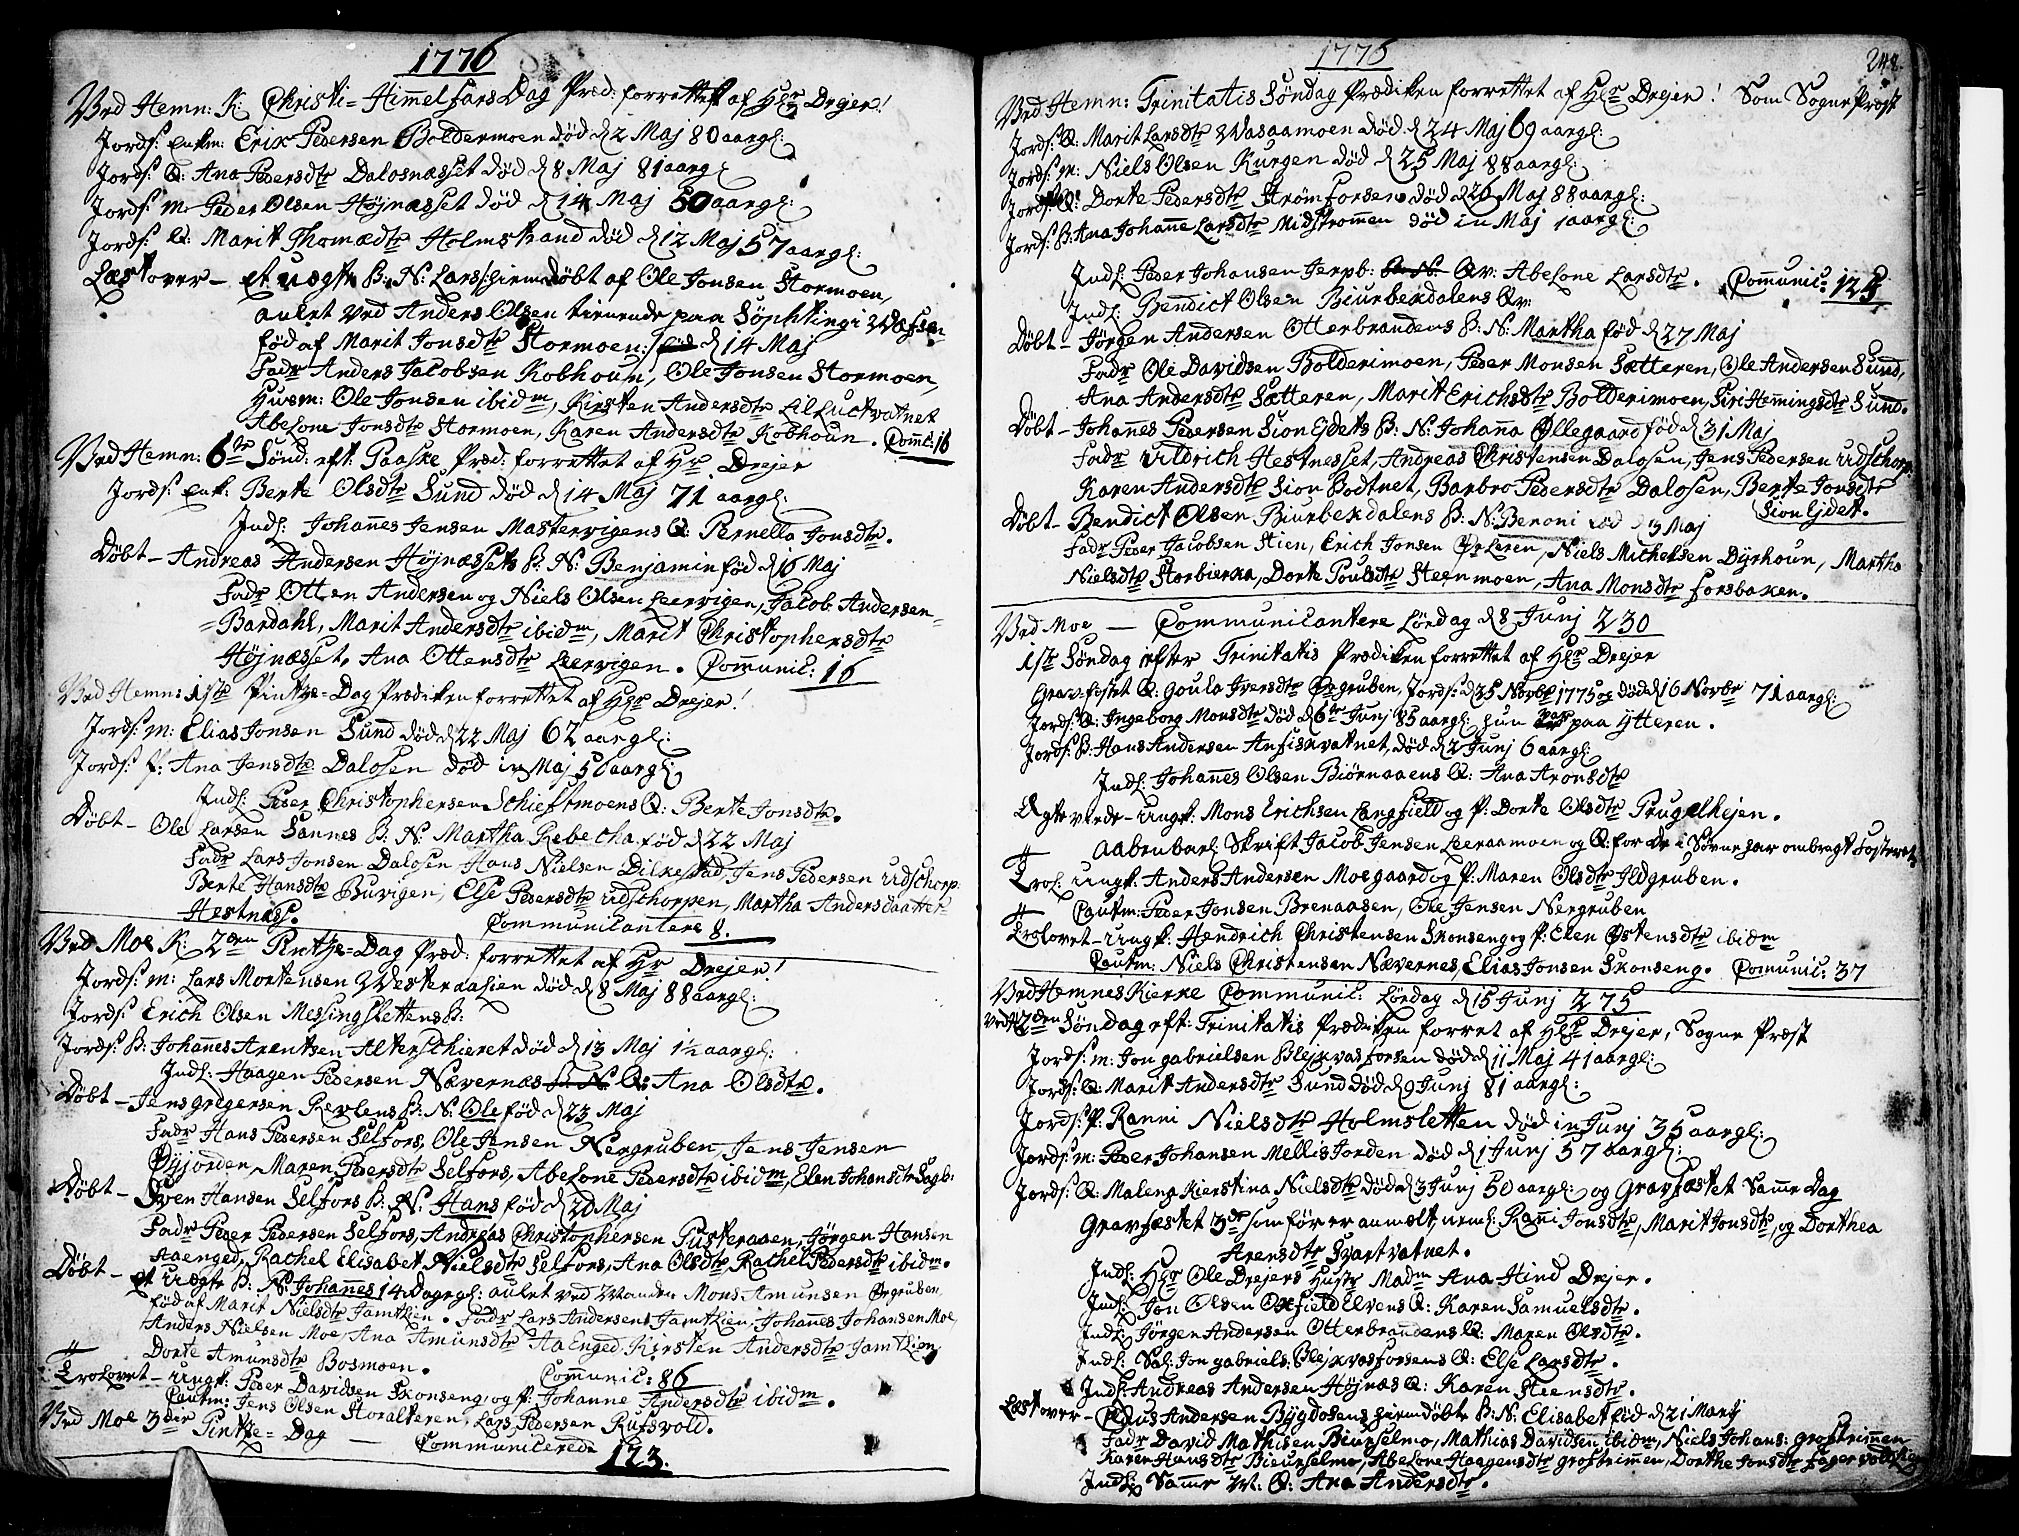 1776
Ved Hemn: K: Christi-Himmelfars Dag Præd: forrettet af Hr Drejer!
Jords: enkm: Erik Pedersen Boldermoen død d 2 Maj 80 aargl:
Jords: Q: Ana Pedersdtr Dalosnæsset død d 8 Maj 81 aarg
Jords: m: Peder Olsen Højnæsset død d 14 Maj 50 aargl:
Jords: Q: Marit Thomædtr Holmstrand død d 12 Maj 57 aargl:
Læst over - et uægte B: N: Lars hiemdøbt af Ole Jonsen Stormoen,
aulet ved Anders Olsen tienende paa Søphting i Wefsen
fød af Marit Jonsdtr Stormoen: fød d 14 Maj
Fadr Anders Jacobsen Kobhoun, Ole Jonsen Stormoen,
Husm: Ole Jonsen ibidm, Kirsten Andersdtr Lil Luctvatnet
Abelone Jonsdtr Stormoen, Karen Andersdtr Kobhoun. Comc: 16
Ved Hemn: 6te Sønd: eft: Paaske Præd: forrettet af Hr Drejer
Jords: enk: Berte Olsdtr Sund død d 14 Maj 71 aargl:
Indl: Johanes Jensen Mastervigens Q: Pernella Jonsdtr.
Døbt - Andreas Andersen Højnæssets B: N: Benjamin fød d 16 Maj
Fadr Otten Andersen og Niels Olsen Leervigen, Jacob Andersen
Bardahl, Marit Andersdtr ibidm, Marit Christophersdtr
Højnæsset, Ana Ottensdtr Leervigen. Comunic: 16
Ved Hemn: 1ste Pintze-Dag Prædiken forrettet af Hr Drejer!
Jords: m: Elias Jonsen Sund død d 22 Maj 62 aargl:
Jords: P: Ana Jensdtr Dalosen død in Maj 50 aargl:
Indl: Peder Christophersen Schieftmoens Q: Berte Jonsdtr.
Døbt - Ole Larsen Sannes B: N: Martha Rebecha fød d 22 Maj
Fadr Lars Jonsen Dalosen Hans Nielsen Dilkestad, Jens Pedersen Udschorp:
Berte Hansdtr Buvigen, Else Pedersdtr Udschorpen, Martha Andersdaatter
Hestnæss. Communicantere 8.
Ved Moe K: 2den Pintze-Dag Præd: forrettet af Hr Drejer!
Jords: m: Lars Mortensen Westeraalien død d 8 Maj 88 aargl:
Jords: Erich Olsen Messingslettens B:
Jords: B: Johanes Arentsen Alterschieret død d 13 Maj 1½ aargl:
Indl: Haagen Pedersen Nævernæs B: N: Q: Ana Olsdtr.
Døbt - Jens gregersen Revlens B: N: Ole fød d 23 Maj
Fadr Hans Pedersen Selfors, Ole Jensen Nergruben, Jens Jensen
Øyjorden, Maren Pedersdtr Selfors, Abelone Pedersdtr ibidm, Elen Johansdtr
Døbt - Sven Hansen Selfors B: N: Hans fød d 20 Maj
Fadr Peder Pedersen Selfors, Andreas Christophersen Pusteraaen, Jørgen Hansen
Aaenged, Rachel Elisabet Nielsdtr Selfors, Ana Olsdtr, Rachel Pedersdtr ibidm.
Døbt - et uægte B: N: Johannes 14 Dagegl: aulet ved Manden Mons Amunsen Ørgruben
fød af Marit Nielsdtr Jamtlien. Fadr Lars Andersen Jamtlien, Johanes Johansen Moe,
Anders Nielsen Moe, Ana Amunsdtr Aa Enged, Kirsten Andersdtr Jamtlien
Dorte Amunsdtr Bosmoen. Comunic: 86
Trolovet - ungk: Peder Davidsen Skonseng og P: Johanne Andersdtr ibidm.
Cautm: Jens Olsen Storalteren, Lars Pedersen Rufsvold.
Ved Moe 3die Pintze-Dag - Communicerede
123.
1776
248.
Ved Hemn: Trinitatis Søndag Prædiken forrettet af Hr Drejer! Som Sogne Præst
Jords: Q: Marit Larsdtr Wasaamoen død d 24 Maj 69 aargl:
Jords: m: Niels Olsen Kurgen død d 25 Maj 88 aargl:
Jords: Q: Dorte Pedersdtr Strømforsen død d 26 Maj 88 aargl:
Jords: B: Ana Johane Larsdtr Midstrømmen død in Maj 1 aargl:
Indl: Peder Johansen Jerpb: B: N: Qv: Abelone Larsdtr. Comunic: 125
Indl: Bendict Olsen Biurbekdalens Qv:
Døbt - Jørgen Andersen Otterbrandens B: N: Martha fød d 27 Maj
Fadr Ole Davidsen Bolderimoen, Peder Monsen Sætteren, Ole Andersen Sund,
Ana Andersdtr Sætteren, Marit Erichsdtr Bolderimoen, Siri Hemingsdtr Sund.
Døbt - Johanes Pedersen Sion Ejdets B: N: Johana Øllegaard fød d 31 Maj
Fadr Uldrich Hestnesset, Andreas Christensen Dalosen, Jens Pedersen Udschorp:
Karen Andersdtr Sion Bodtnet, Barbro Pedersdtr Dalosen, Berte Jonsdtr
Sion Ejdet.
Døbt - Bendict Olsen Biurbekdalens B: N: Benoni fød d 3 Maj
Fadr Peder Jacobsen Stien, Erich Jonsen, Niels Michelsen Dyrhoun, Martha
Nielsdtr Storbierka, Dorte Poulsdtr Steenmoen, Ana Monsdtr Forsbaken.
Ved Moe - Communicantere Lørdag d 8 Junj 230
1ste Søndag efter Trinitatis Prædiken forrettet af Hr Drejer
Grav-festet Q: Goula Iversdtr Ørgruben, Jords: d 25 Novbr 1775 og død d 16 Novbr 71 aargl:
Jords: Q: Ingeborg Monsdtr død d 6te Junj 85 aargl: hun var paa Ytteren.
Jords: B: Hans Andersen Anfiskvatnet død d 2 Junj 6 aargl:
Indl: Johanes Olsen Biørnaaens Q: Ana Aronsdtr
Ægteviede - ungk: Mons Erichsen Langfield og P: Dorte Olsdtr Trugelhejen.
Aabenbarl Skrift Jacob Jensen Leeraamoen og Q: for de i Søvne har ombragt Fosteret
Trol: ungk: Anders Andersen Moegaard og P: Maren Olsdtr Ildgruben.
Cautm: Peder Jonsen Brenaasen, Ole Jensen Nergruben
Trolovet - ungk: Hendrich Christensen Skonseng og P: Elen Østensdtr ibidm
Cautm: Niels Christensen Nævernes, Elias Jonsen Skonseng. Comunic: 37
Ved Hemnes Kierke Communic: Lørdag d 15 Junj 275
2den Søndag eft: Trinitatis Prædiken forret af Hr Drejer, Sogne Præst
Jords: m: Jon gabrielsen Blejkvasforsen død d 11 Maj 41 aargl:
Jords: Q: Marit Andersdtr Sund død d 9 Junj 81 aargl:
Jords: P: Ranni Nielsdtr Holmsletten død in Junj 35 aargl:
Jords: m: Peder Johansen Mellisjorden død d 1 Junj 57 aargl:
Jords: Q: Malena Kierstina Nielsdtr død d 3 Junj 50 aargl: og Gravfæstet Samme Dag
Gravfæstet 3de som før er anmælt, neml: Rani Jonsdtr, Marit Jonsdtr, og Dorthea
Arensdtr Svartvatnet.
Indl: Hr Ole Drejers Hustr Madm Ana Hind Drejer.
Indl: Jon Olsen Oxfieldelvens Q: Karen Samuelsdtr.
Indl: Jørgen Andersen Otterbrandens Q: Maren Olsdtr.
Indl: Sal: Jon gabriels: Blejkvasforsens Q: Else Larsdtr.
Indl: Andreas Andersen Højnæs Q: Karen Steensdtr.
Læst over - Claus Andersen Bygdosens hiemdøbte B: N: Elisabet fød d 21 Martj
Fadr David Mathisen Biurselmo, Mathias Davidsen ibidm, Niels Johans: grostrimmen
Karen Hansdtr Bieurselmo, Abelone Haagensdtr grostrimmen, Dorthe Jonsdtr
Indl: Samme M: Q: Ana Andersdtr.